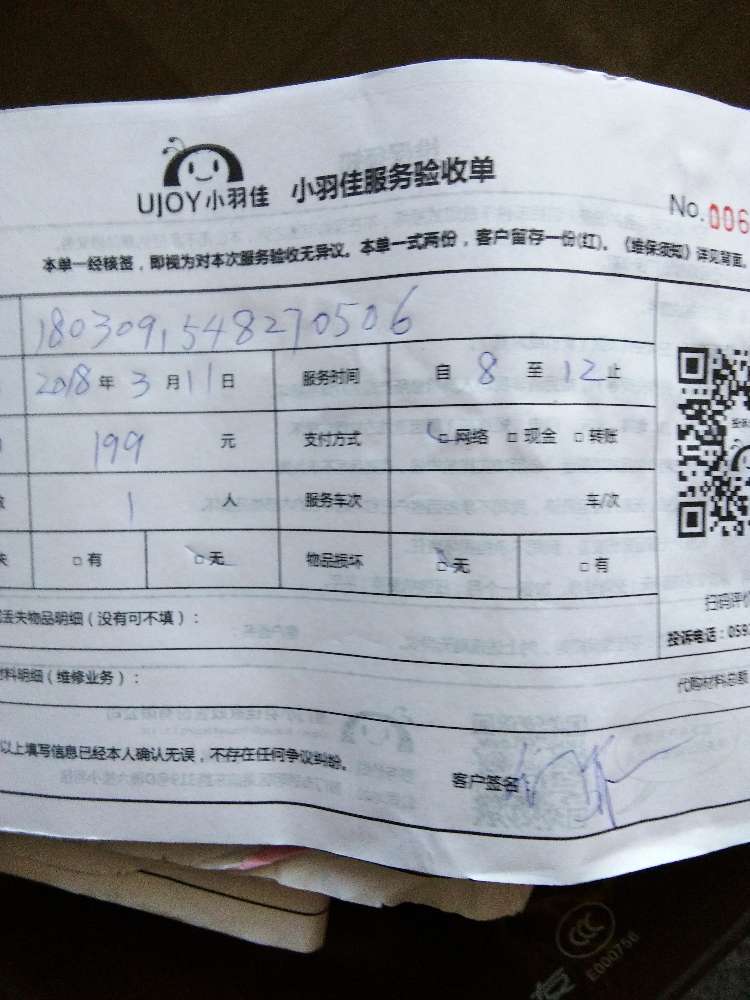 UJOY小羽佳 小羽佳服务验收单
No.006
本单一经核签，即视为对本次服务验收无异议。本单一式两份，客户留存一份(红)。《维保须知》详见背面。
1803091548270506
2018年3月11日 服务时间 自8至12止
199元 支付方式 □网络 □现金 □转账
1人 服务车次 车/次
□有 □无 物品损坏 □无 □有
扫码评价
丢失物品明细（没有可不填）：
投诉电话：059
料明细（维修业务）：
代购材料总额
以上填写信息已经本人确认无误，不存在任何争议纠纷。
客户签名：
CCC
E000756